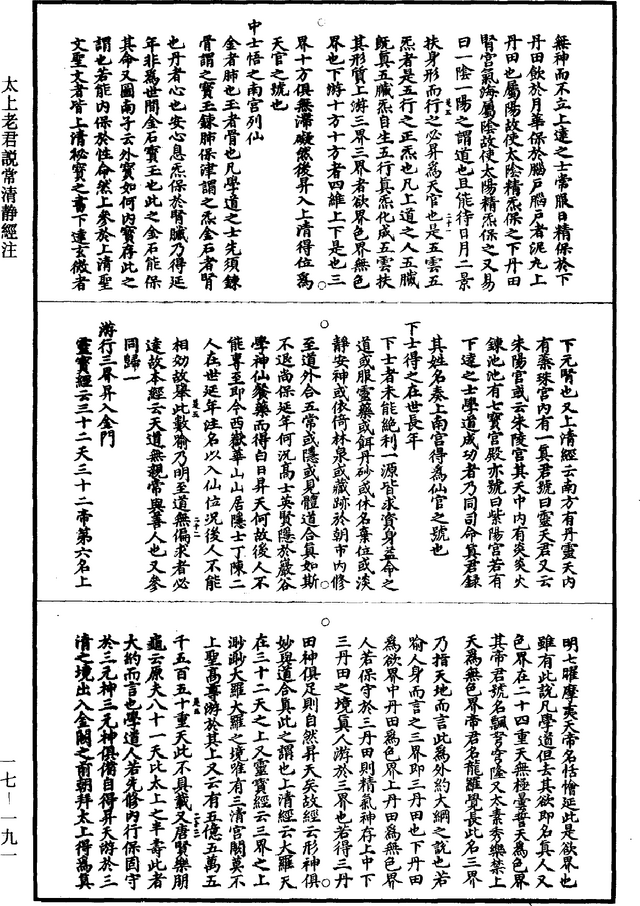 太上老君説常清静經注
無神而不立上達之士常服日精保於下
丹田飲於月華保於腦户腦户者泥丸上
丹田也屬陽故使太陰精炁保之下丹田
腎宫氣海屬陰故使太陽精炁保之又易
曰一陰一陽之謂道也且能待日月二景
扶身形而行之必昇爲天官也是五雲五
炁者是五行之正炁也凡上道之人五臟
既真五臟炁自生五行真炁化成五雲扶
其形質上游三界三界者欲界色界無色
界也下游十方十方者四維上下是也三
界十方俱無滯礙然後昇入上清得位爲
天官之號也
中士悟之南宫列仙
金者肺也玉者骨也凡學道之士先須鍊
骨謂之寶玉鍊肺保津謂之炁金石者腎
也丹者心也安心息炁保於腎臟乃得延
年非爲世間金石寶玉也此之金石能保
其命又圖南子云外寶如何内寶存此之
謂也若能内保於性命然上參於上清聖
文聖文者皆上清秘寶之書下達玄微者
下元腎也又上清經云南方有丹靈天内
有蘂珠宫内有一真君號曰靈天君又云
朱陽宫或云朱陵宫其天中内有炎炎火
鍊池池有七寶宫殿亦號曰紫陽宫若有
下達之士學道成功者乃同司命真君録
其姓名奏上南宫得爲仙官之號也
下士得之在世長年
下士者未能絶利一源皆求資身益命之
道或服靈藥或餌丹砂或休名棄位或淡
静安神或依倚林泉或藏跡於朝市内修
至道外合五常或隱或見體道合真如斯
不退尚保延年何況高士英賢隱於巖谷
學神仙餐藥而得白日昇天何故後人不
能專至即今西嶽華山山居隱士丁陳二
人在世延年注名以入仙位況後人不能
相効故舉此數喻乃明至道無偏求者必
達故本經云天道無親常與善人也又參
同歸一
游行三界昇入金門
靈寶經云三十二天三十二帝第六名上
明七曜摩夷天帝名恬憎延此是欲界也
雖有此説凡學道但去其欲即名真人又
色界在二十四重天無極曇誓天爲色界
其帝君號名飄弩穹隆又太素秀樂禁上
天爲無色界帝君名龍羅覺長此名三界
乃指天地而言此爲外約大綱之説也若
喻人身而言之三界即三丹田也下丹田
爲欲界中丹田爲色界上丹田爲無色界
人若保守於三丹田則精氣神存上中下
三丹田之境真人游於三界也若得三丹
田神俱足則自然昇天矣故經云形神俱
妙與道合真此之謂也上清經云大羅天
在三十二天之上又靈寶經云三界之上
渺渺大羅大羅之境唯有三清宫闕莫不
上聖高尊游於其上又云有五億五萬五
千五百五十重天此不具載又唐賢樂朋
龜云原夫八十一天比太上之半壽此者
大約而言也學道人若先修内行保固守
於三元神三元神俱備自得昇天游於三
清之境出入金闕之前朝拜太上得爲真
一七—一九一